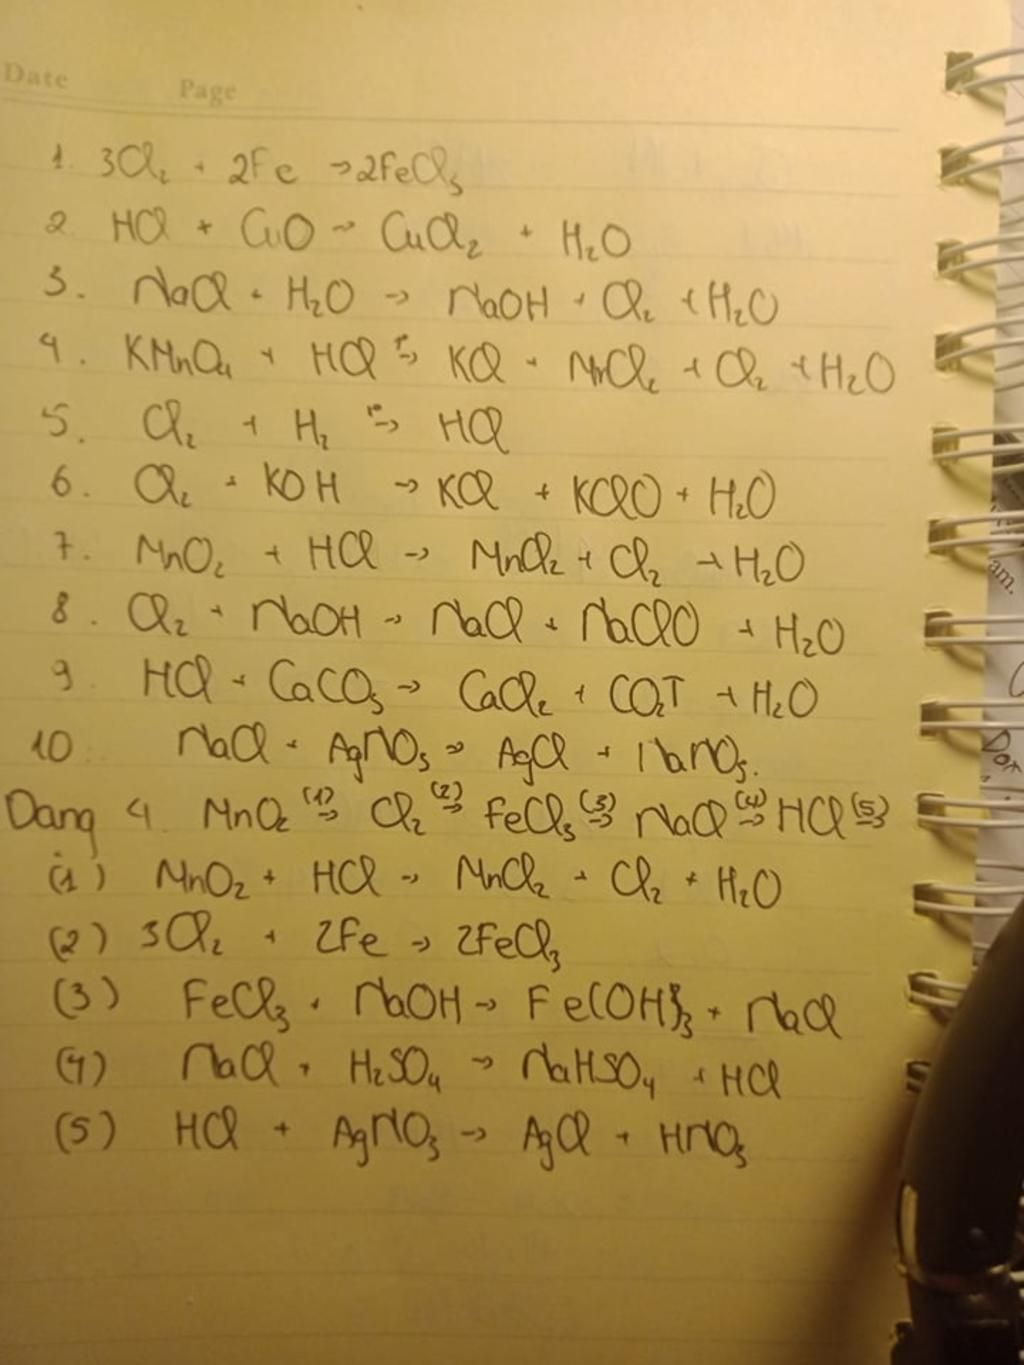 Date Page
1. 3Cl₂ + 2Fe → 2FeCl₃
2 HCl + CuO → CuCl₂ + H₂O
3. NaCl + H₂O → NaOH + Cl₂ + H₂O
4. KMnO₄ + HCl t°→ KCl + MnCl₂ + Cl₂ + H₂O
5. Cl₂ + H₂ t°→ HCl
6. Cl₂ + KOH → KCl + KClO + H₂O
7. MnO₂ + HCl → MnCl₂ + Cl₂ + H₂O
8. Cl₂ + NaOH → NaCl + NaClO + H₂O
9. HCl + CaCO₃ → CaCl₂ + CO₂↑ + H₂O
10. NaCl + AgNO₃ → AgCl + NaNO₃.
Dạng 4. MnO₂ (1)→ Cl₂ (2)→ FeCl₃ (3)→ NaCl (4)→ HCl (5)→
(1) MnO₂ + HCl → MnCl₂ + Cl₂ + H₂O
(2) 3Cl₂ + 2Fe → 2FeCl₃
(3) FeCl₃ + NaOH → Fe(OH)₃ + NaCl
(4) NaCl + H₂SO₄ → NaHSO₄ + HCl
(5) HCl + AgNO₃ → AgCl + HNO₃
am.